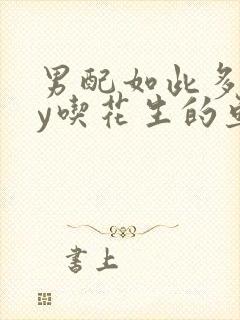 男配如此多
y喫花生的
書上